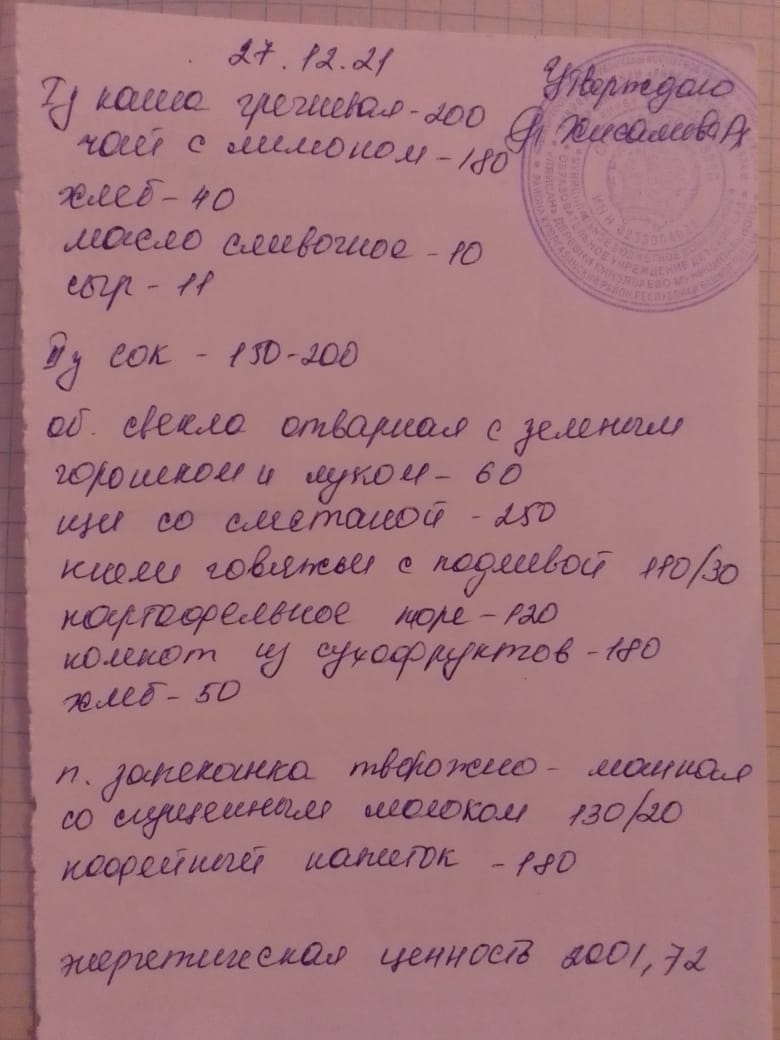 27.12.21
Утверждаю
Хисамова Р
Iу каша гречневая - 200
чай с лимоном - 180
хлеб - 40
масло сливочное - 10
сыр - 11
IIу сок - 150-200
об. свекла отварная с зеленым
горошком и луком - 60
щи со сметаной - 250
говяжьи с подливой 110/30
картофельное пюре - 120
компот из сухофруктов - 180
хлеб - 50
п. запеканка творожно - манная
со сгущенным молоком 130/20
кофейный напиток - 180
энергетическая ценность 2001,72